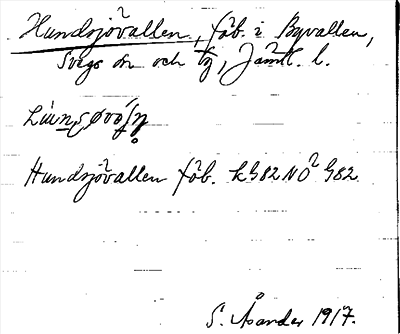 Hundsjövallen, fäb. i Byvallen,
Svegs sn och tg, Jämtl. l.
Hundsjövallen fäb. k G82 NO² G82
S. Åsander 1917.